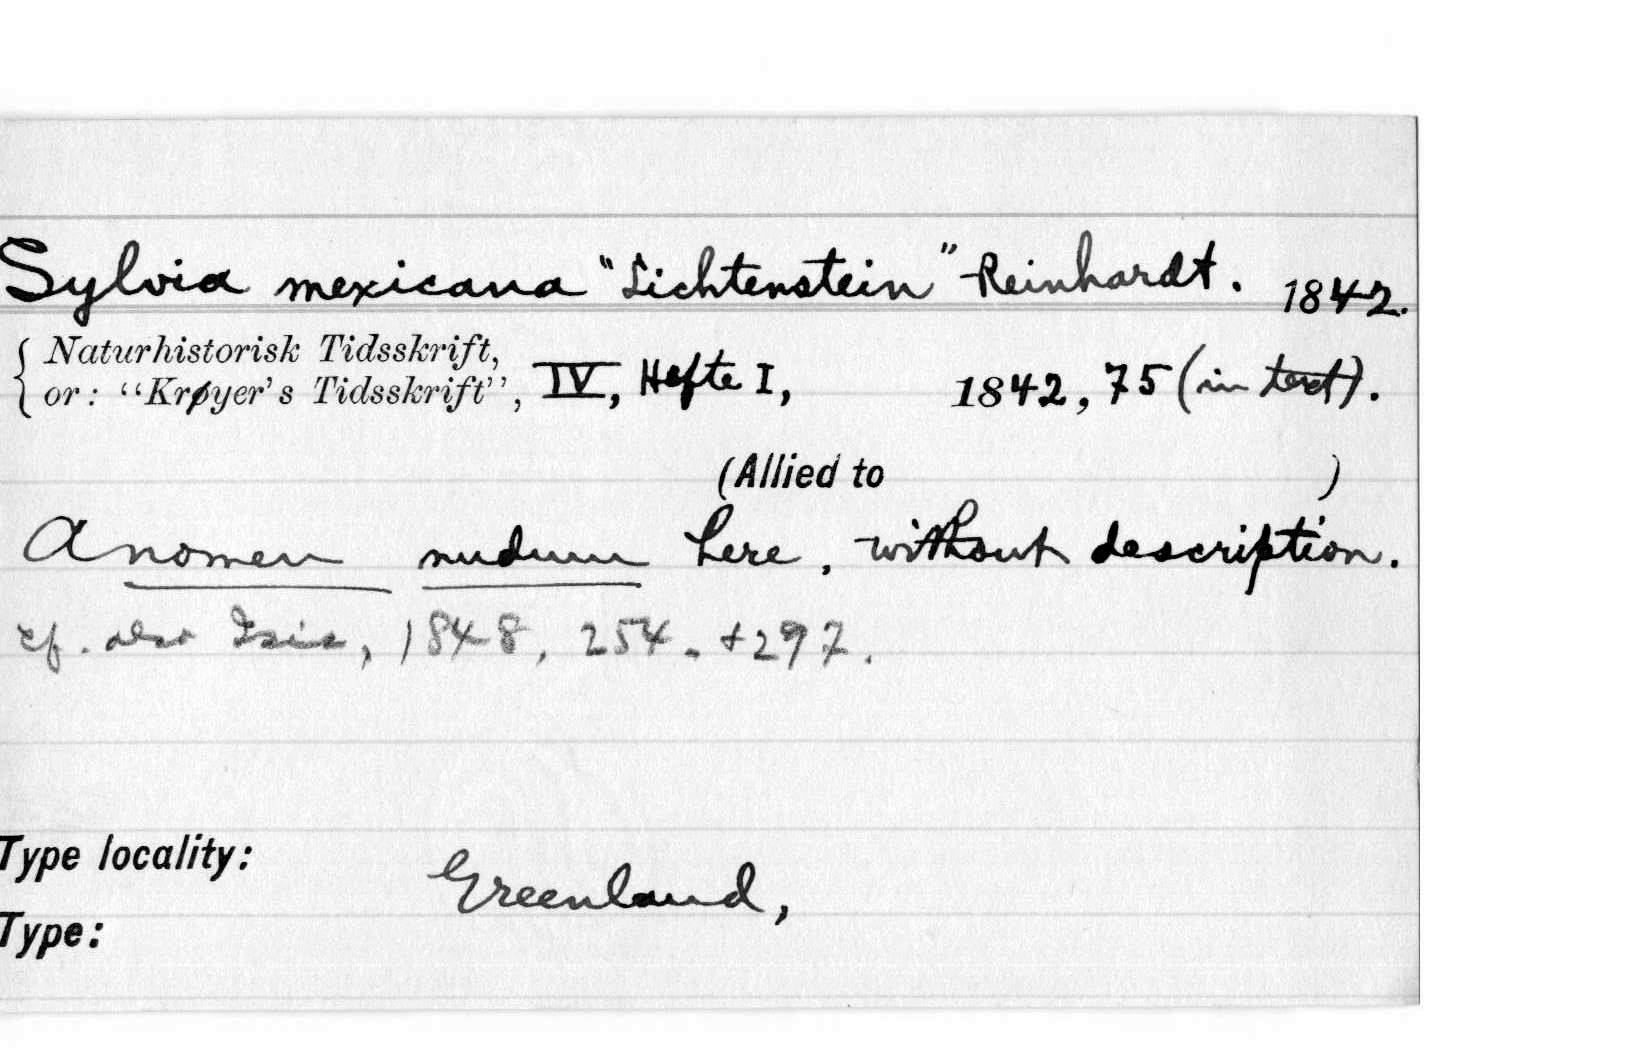 Sylvia mexicana "Lichtenstein" Reinhardt. 1842.
{ Naturhistorisk Tidsskrift,
or: "Krøyer's Tidsskrift", IV, Hefte I, 1842, 75 (in text).
(Allied to )
A nomen nudum here, without description.
cf. also Isis, 1848, 254. + 297.
Type locality: Greenland,
Type: